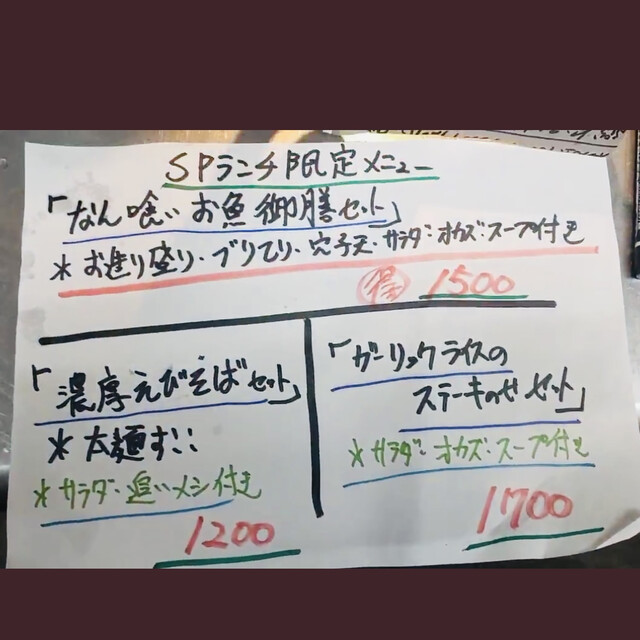 SPランチ限定メニュー
「なん喰い お魚御膳セット」
* お造り盛り・ブリてり・穴子天・サラダ・オカズ・スープ付き
得 1500
「濃厚えびそばセット」
* 太麺す!!
* サラダ・追いメシ付き
1200
「ガーリックライスの
ステーキのせセット」
* サラダ・オカズ・スープ付き
1700